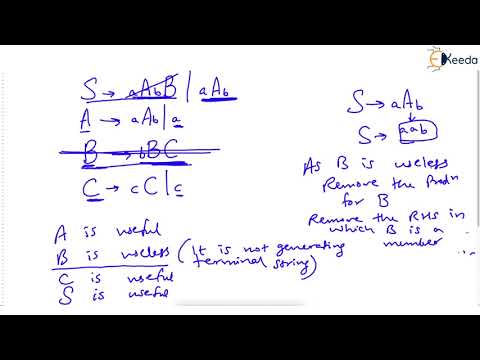 Keeda
S → aAbB | aAb
A → aAb | a
B → bBC
C → cC | c
A is useful
B is useless (It is not generating terminal string)
C is useful
S is useful
S → aAb
S → aab
As B is useless
Remove the Prodn
for B
Remove the RHS in
which B is a
member